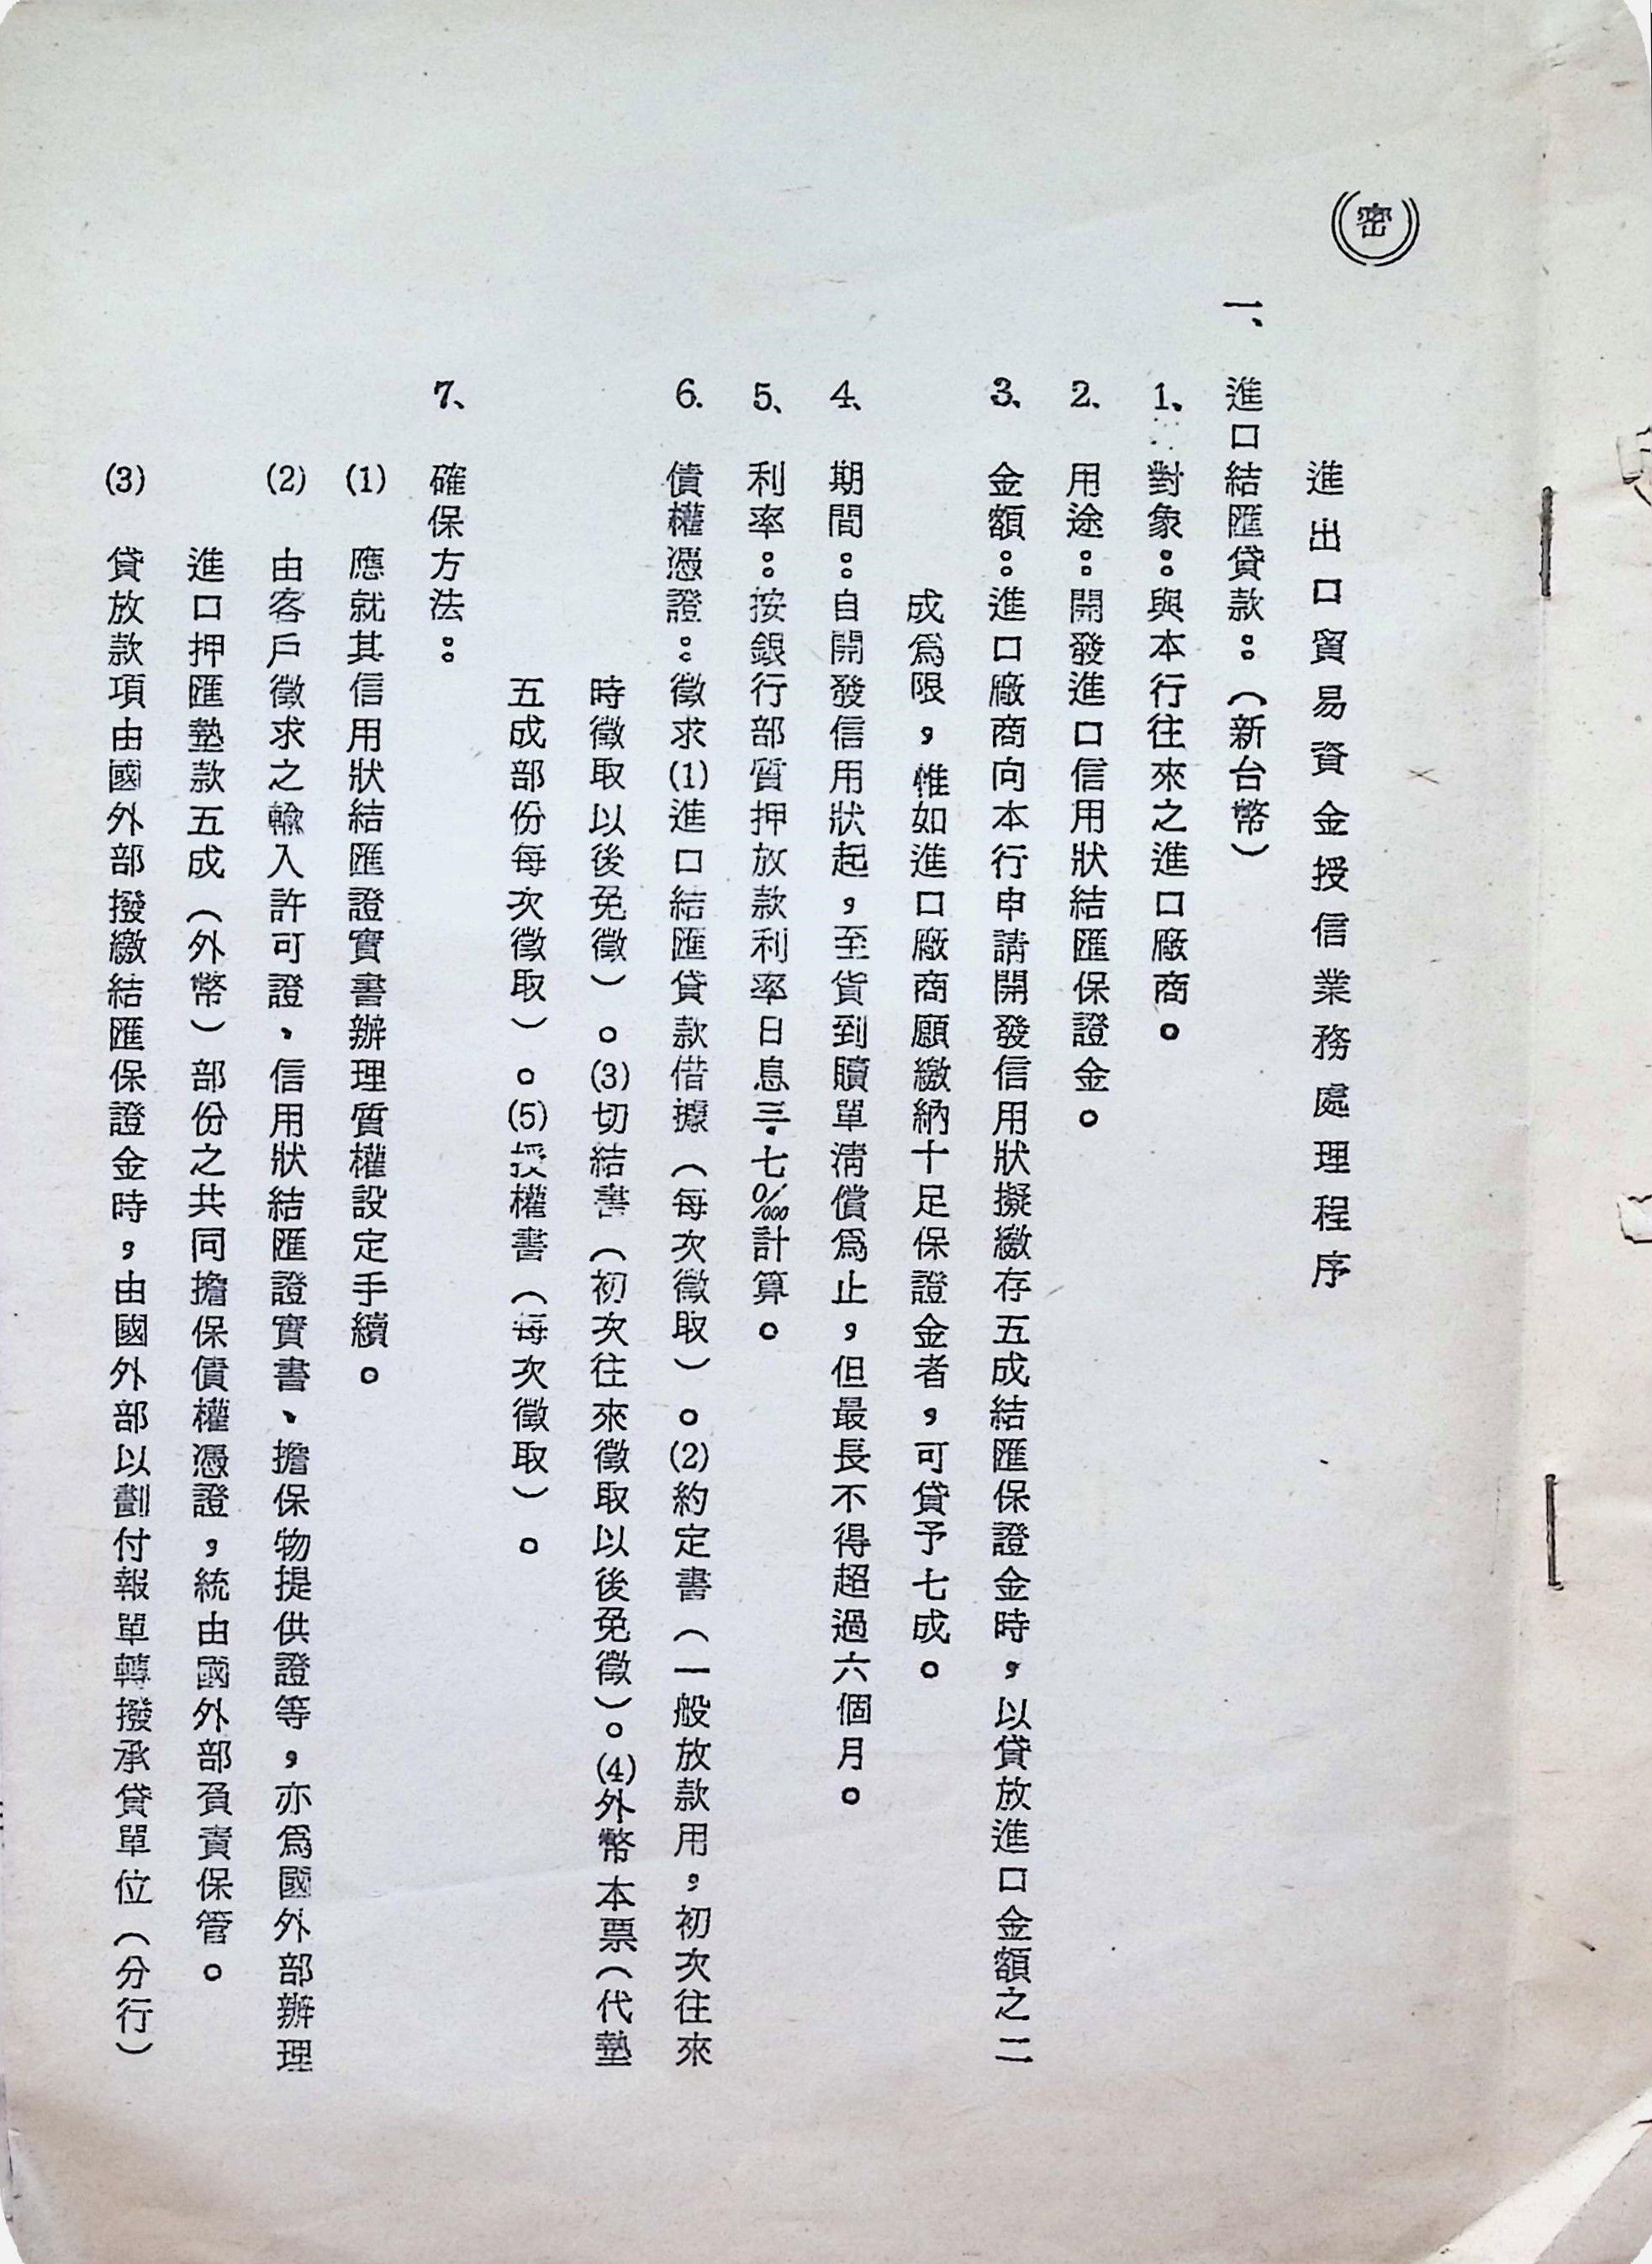 密
進出口貿易資金授信業務處理程序
一、進口結匯貸款：（新台幣）
1、對象：與本行往來之進口廠商。
2、用途：開發進口信用狀結匯保證金。
3、金額：進口廠商向本行申請開發信用狀擬繳存五成結匯保證金時，以貸放進口金額之二
成爲限，惟如進口廠商願繳納十足保證金者，可貸予七成。
4、期間：自開發信用狀起，至貨到贖單清償爲止，但最長不得超過六個月。
5、利率：按銀行部質押放款利率日息三．七‱計算。
6. 債權憑證：徵求(1)進口結匯貸款借據（每次徵取）。(2)約定書（一般放款用，初次往來
時徵取以後免徵）。(3)切結書（初次往來徵取以後免徵）。(4)外幣本票（代墊
五成部份每次徵取）。(5)授權書（每次徵取）。
7、確保方法：
(1) 應就其信用狀結匯證實書辦理質權設定手續。
(2) 由客戶徵求之輸入許可證、信用狀結匯證實書、擔保物提供證等，亦爲國外部辦理
進口押匯墊款五成（外幣）部份之共同擔保債權憑證，統由國外部負責保管。
(3) 貸放款項由國外部撥繳結匯保證金時，由國外部以劃付報單轉撥承貸單位（分行）